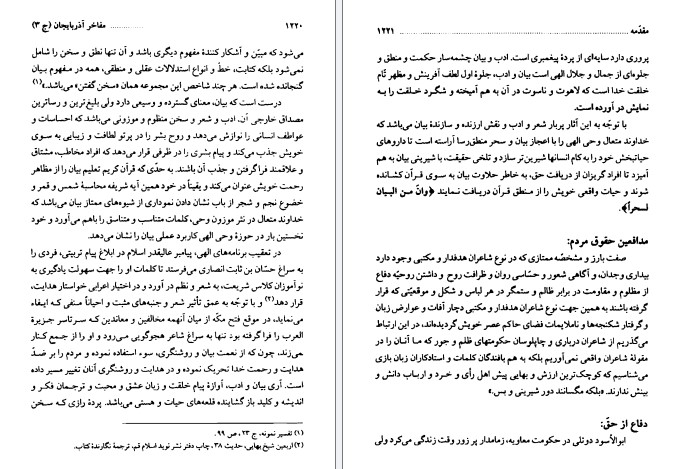 ۱۲۲۰ ............... مفاخر آذربایجان (ج ۳)
می‌شود که مبیّن و آشکار کنندهٔ مفهوم دیگری باشد و آن تنها نطق و سخن را شامل
نمی‌شود بلکه کتابت، خطّ و انواع استدلالات عقلی و منطقی، همه در مفهوم بیان
گنجانده شده است. هر چند شاخص این مجموعه همان «سخن گفتن» می‌باشد.»(۱)
درست است که بیان، معنای گسترده و وسیعی دارد ولی بلیغ‌ترین و رساترین
مصداق خارجی آن، ادب و شعر و سخن منظوم و موزونی می‌باشد که احساسات و
عواطف انسانی را نوازش می‌دهد و روح بشر را در پرتو لطافت و زیبایی به سوی
خویش جذب می‌کند و پیام بشری را در ظرفی قرار می‌دهد که افراد مخاطب، مشتاق
و علاقمند فراگرفتن و جذب آن باشند. به حدّی که قرآن کریم تعلیم بیان را از مظاهر
رحمت خویش عنوان می‌کند و یقیناً در خود همین آیه شریفه محاسبهٔ شمس و قمر و
خضوع نجم و شجر از باب نشان دادن نموداری از شیوه‌های ممتاز بیان می‌باشد که
خداوند متعال در نثر موزون وحی، کلمات متناسب و متناسق را باهم می‌آورد و خود
نخستین بار در حوزهٔ وحی الهی کاربرد عملی بیان را نشان می‌دهد.
در تعقیب برنامه‌های الهی، پیامبر عالیقدر اسلام در ابلاغ پیام تربیتی، فردی را
به سراغ حسّان بن ثابت انصاری می‌فرستد تا کلمات او را جهت سهولت یادگیری به
نوآموزان کلاس شریعت، به شعر و نظم در آورد و در اختیار اعرابی خواستار هدایت،
قرار دهد(۲) و با توجّه به عمق تأثیر شعر و جنبه‌های مثبت و احیاناً منفی که ایفاء
می‌نماید، در موقع فتح مکّه از میان آنهمه مخالفین و معاندین که سرتاسر جزیرة
العرب را فرا گرفته بود تنها به سراغ شاعر هجوگویی می‌رود و او را از جمع کنار
می‌زند، چون که از نعمت بیان و روشنگری، سوء استفاده نموده و مردم را بر ضدّ
هدایت و رحمت خدا تحریک نموده و در هدایت و روشنگری آنان تغییر مسیر داده
است. آری بیان و ادب، آوازهٔ پیام خلقت و زبان عشق و محبت و ترجمان فکر و
اندیشه و کلید باز گشاینده قلعه‌های حیات و هستی می‌باشد. پردهٔ رازی که سخن
(۱) تفسیر نمونه، ج ۲۳، ص ۹۹.
(۲) اربعین شیخ بهایی، حدیث ۳۸، چاپ دفتر نشر نوید اسلام قم، ترجمهٔ نگارندهٔ کتاب.
مقدّمه ............... ۱۲۲۱
پروری دارد سایه‌ای از پردهٔ پیغمبری است. ادب و بیان چشمه‌سار حکمت و منطق و
جلوه‌ای از جمال و جلال الهی است بیان و ادب، جلوهٔ اول لطف آفرینش و مظهر تامّ
خلقت خدا است که لاهوت و ناسوت در آن به هم آمیخته و شگرد خلقت را به
نمایش در آورده است.
با توجّه به این آثار پربار شعر و ادب و نقش ارزنده و سازندهٔ بیان می‌باشد که
خداوند متعال وحی الهی را با اعجاز بیان و سحر منطق‌رسا آراسته است تا داروهای
حیاتبخش خود را به کام انسانها شیرین‌تر سازد و تلخی حقیقت، با شیرینی بیان به هم
آمیزد تا افراد گریزان از دریافت حق، به خاطر حلاوت بیان به سوی قرآن کشانده
شوند و حیات واقعی خویش را از منطق قرآن دریافت نمایند «وانّ من البیان
لسحراً».
مدافعین حقوق مردم:
صفت بارز و مشخّصه ممتازی که در نوع شاعران هدفدار و مکتبی وجود دارد
بیداری وجدان، و آگاهی شعور و حسّاسی روان و ظرافت روح و داشتن روحیّه دفاع
از مظلوم و مقاومت در برابر ظالم و ستمگر در هر لباس و شکل و موقعیّتی که قرار
گرفته باشند به همین جهت نوع شاعران هدفدار و مکتبی دچار آفات و عوارض زبان
و گرفتار شکنجه‌ها و ناملایمات فضای حاکم عصر خویش گردیده‌اند، در این ارتباط
می‌گذریم از شاعران درباری و چاپلوسان حکومتهای ظلم و جور که ما آنان را در
مقولهٔ شاعران واقعی نمی‌آوریم بلکه به هم بافندگان کلمات و استادکاران زبان بازی
می‌شناسیم که کوچک‌ترین ارزش و بهایی پیش اهل رأی و خرد و ارباب دانش و
بینش ندارند. «بلکه مگسانند دور شیرینی و بس.»
دفاع از حقّ:
ابوالأسود دوئلی در حکومت معاویه، زمامدار پر زور وقت زندگی می‌کرد ولی